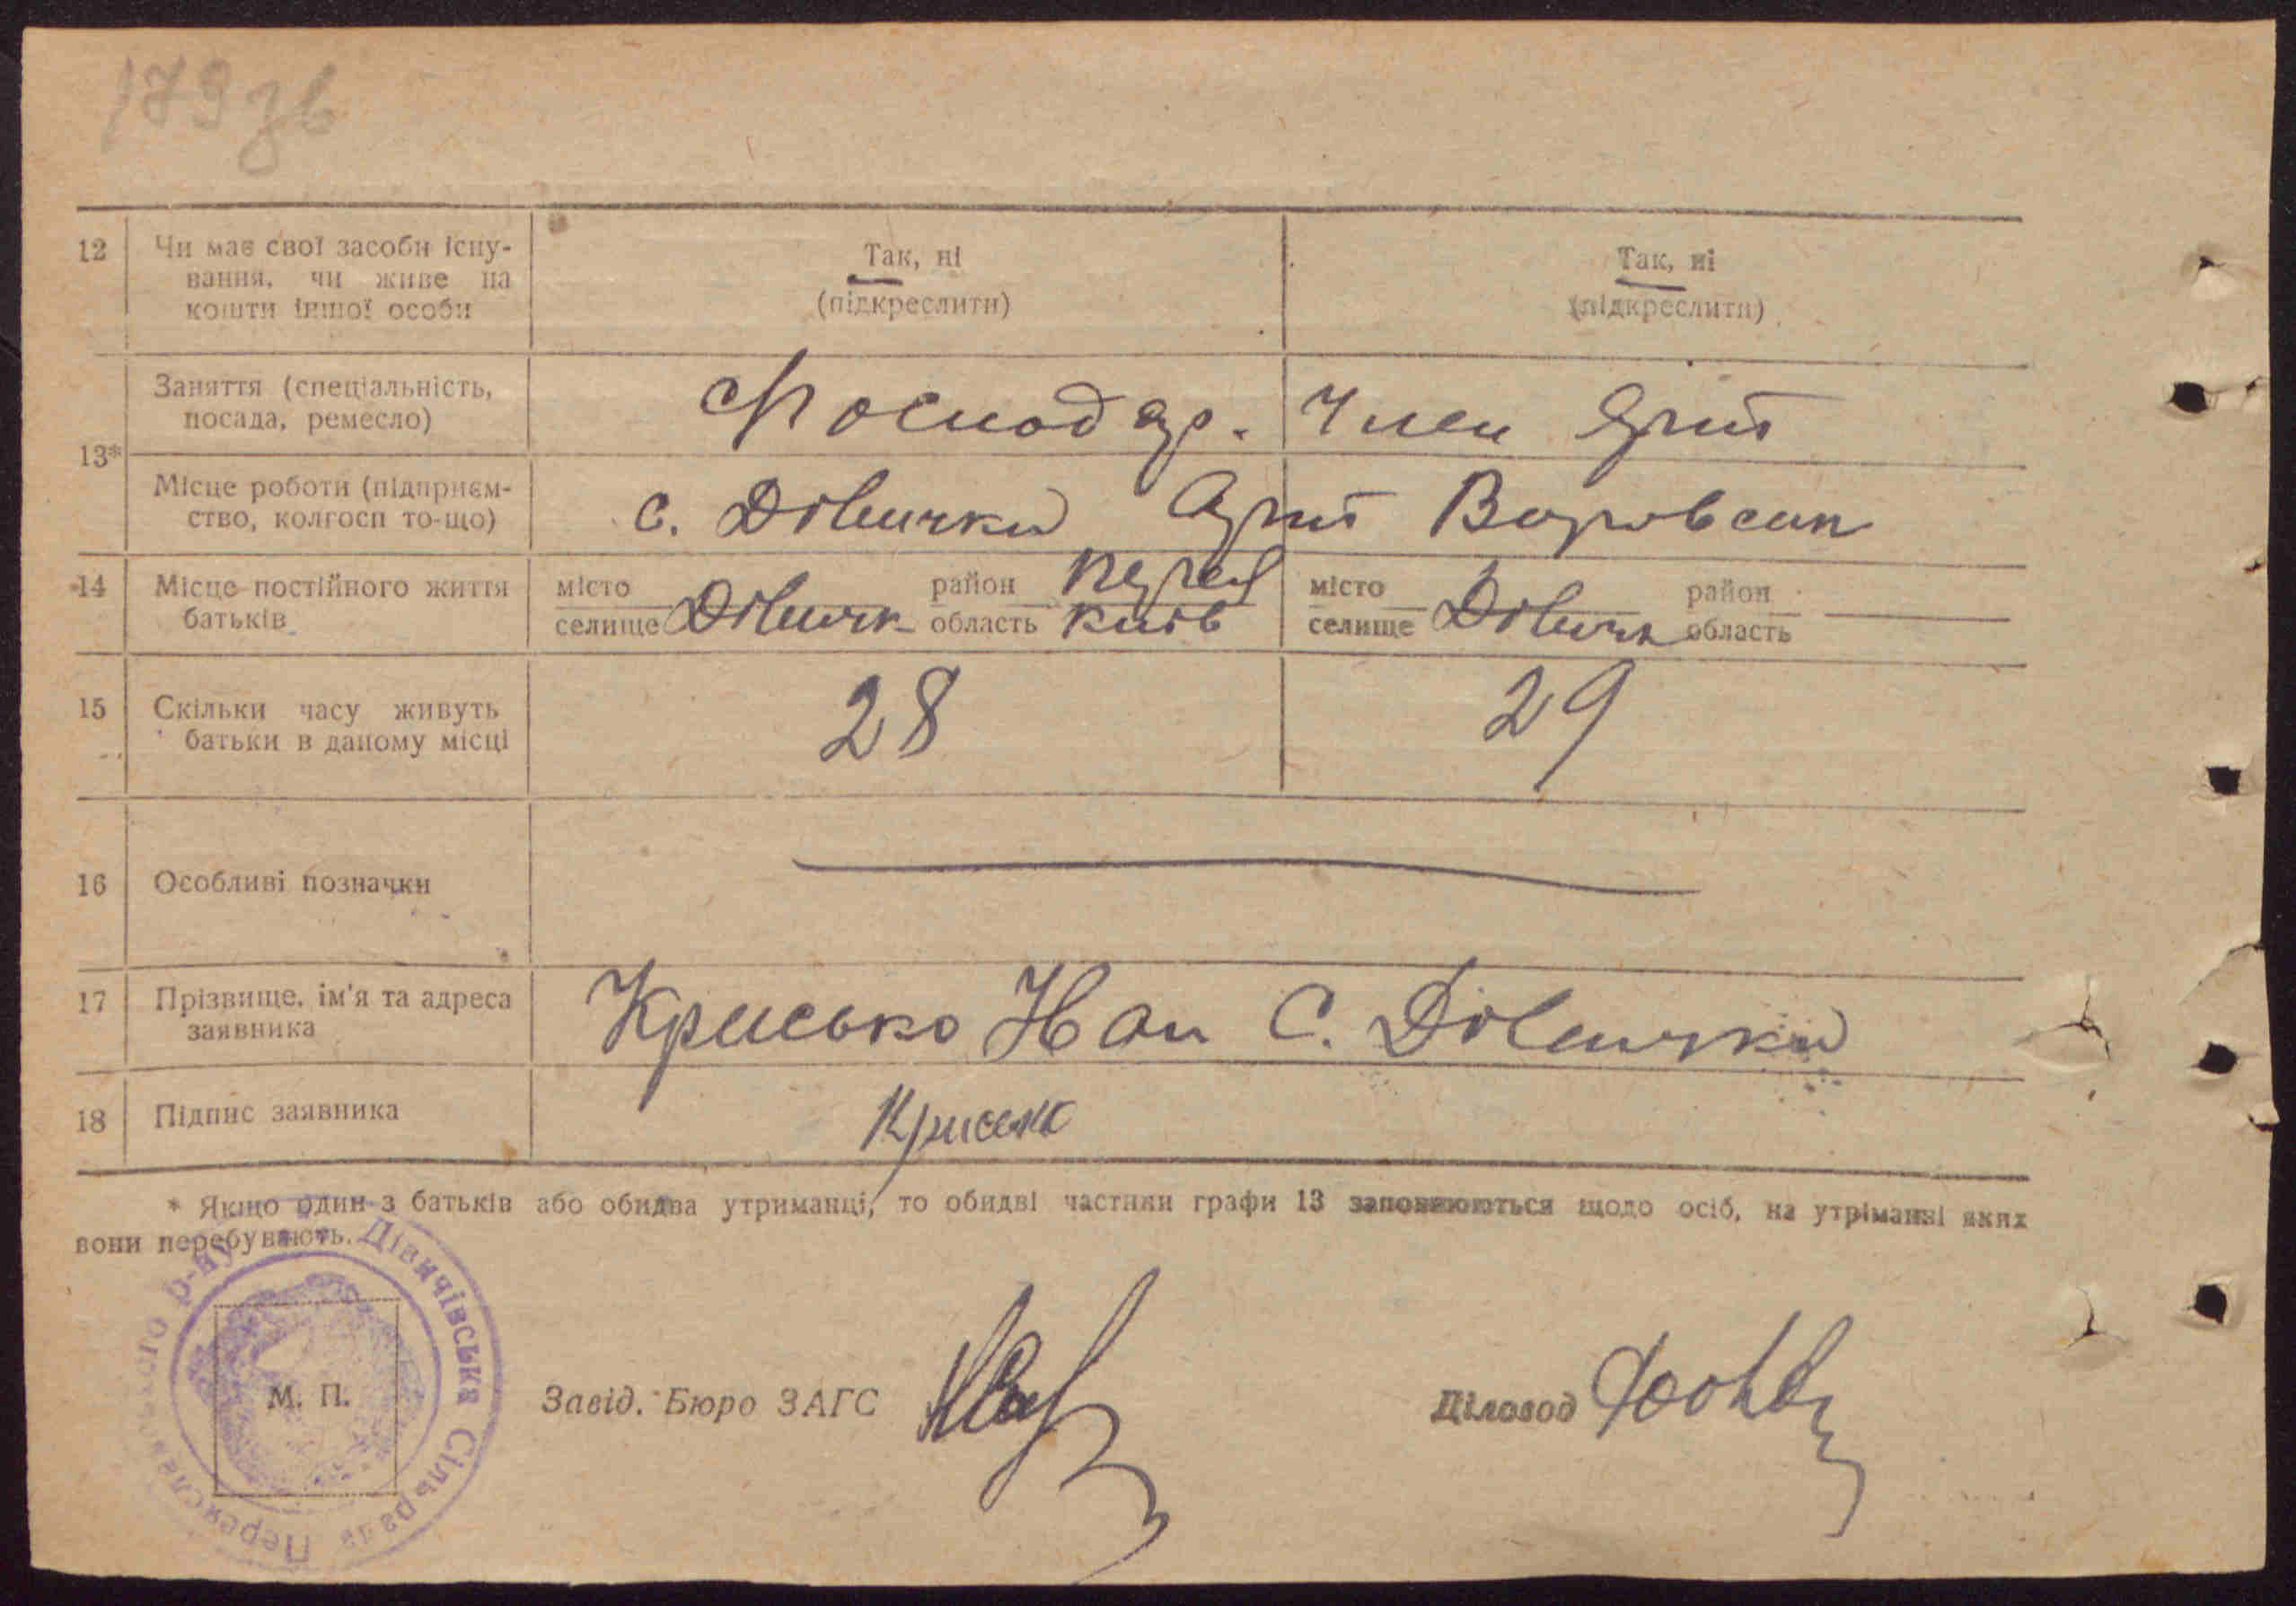 179 зв
12 Чи має свої засоби існу-
вання, чи живе на
кошти іншої особи
Так, ні
(підкреслити)
Так, ні
(підкреслити)
13*
Заняття (спеціальність,
посада, ремесло)
Господар. Член Арт
Місце роботи (підприєм-
ство, колгосп то-що)
с. Дівички Арт
14 Місце постійного життя
батьків
місто
селище Дівичк
район Перея
область Київ
місто
селище Дівичк
район
область
15 Скільки часу живуть
батьки в даному місці
28 29
16 Особливі позначки
17 Прізвище, ім'я та адреса
заявника
Крисько Іван С. Дівички
18 Підпис заявника
Крисько
* Якщо один з батьків або обидва утриманці, то обидві частини графи 13 заповнюються щодо осіб, на утріманні яких
вони перебувають.
Дівичівська Сільрада Переяславського р-ну
М. П.
Завід. Бюро ЗАГС
Діловод